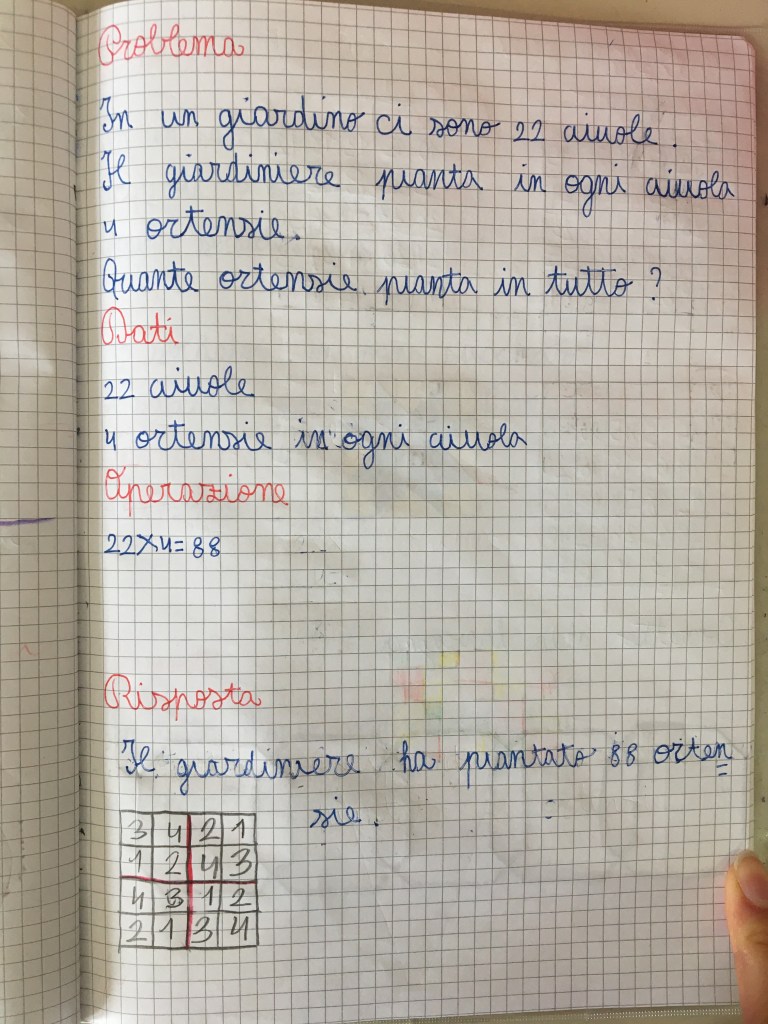 Problema
In un giardino ci sono 22 aiuole.
Il giardiniere pianta in ogni aiuola
4 ortensie.
Quante ortensie pianta in tutto?
Dati
22 aiuole
4 ortensie in ogni aiuola
Operazione
22×4=88
Risposta
Il giardiniere ha piantato 88 orten
sie.
3 4 2 1
1 2 4 3
4 3 1 2
2 1 3 4